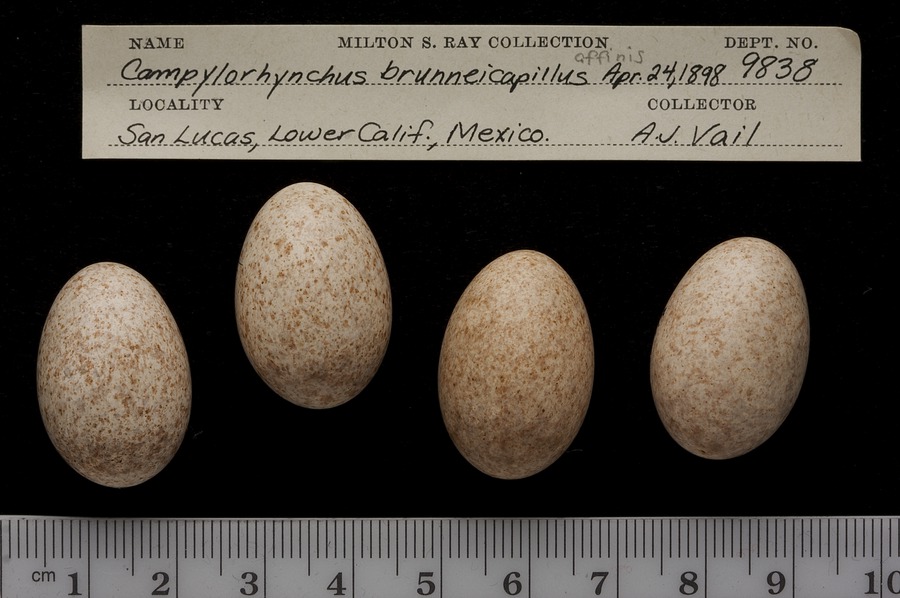 NAME MILTON S. RAY COLLECTION DEPT. NO.
affinis
Campylorhynchus brunneicapillus Apr. 24, 1898 9838
LOCALITY COLLECTOR
San Lucas, Lower Calif., Mexico. A.J. Vail
cm 1 2 3 4 5 6 7 8 9 10